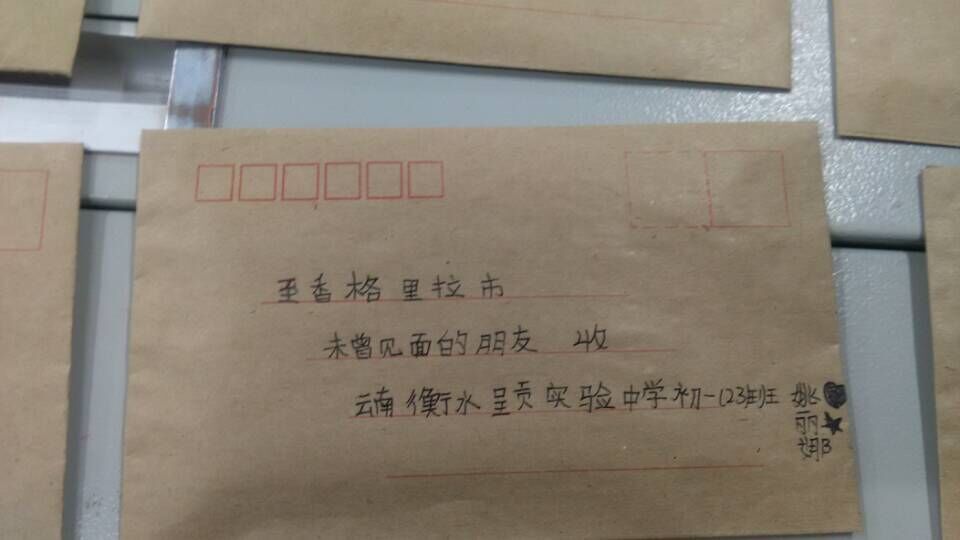 至香格里拉市
未曾见面的朋友 收
云南衡水呈贡实验中学初一(23)班 姚
丽
娜